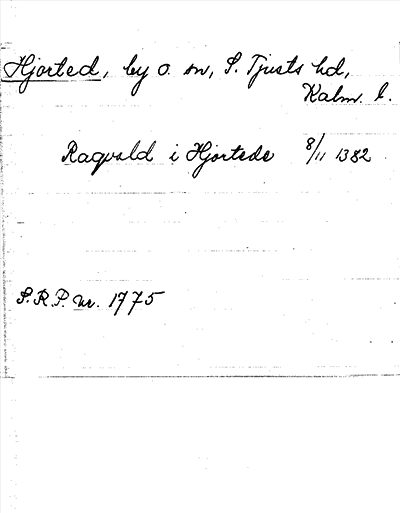 Hjorted, by o. sn, S. Tjusts hd,
Kalm. l.
Ragvald i Hjortede 8/11 1382
S.R.P. nr. 1775